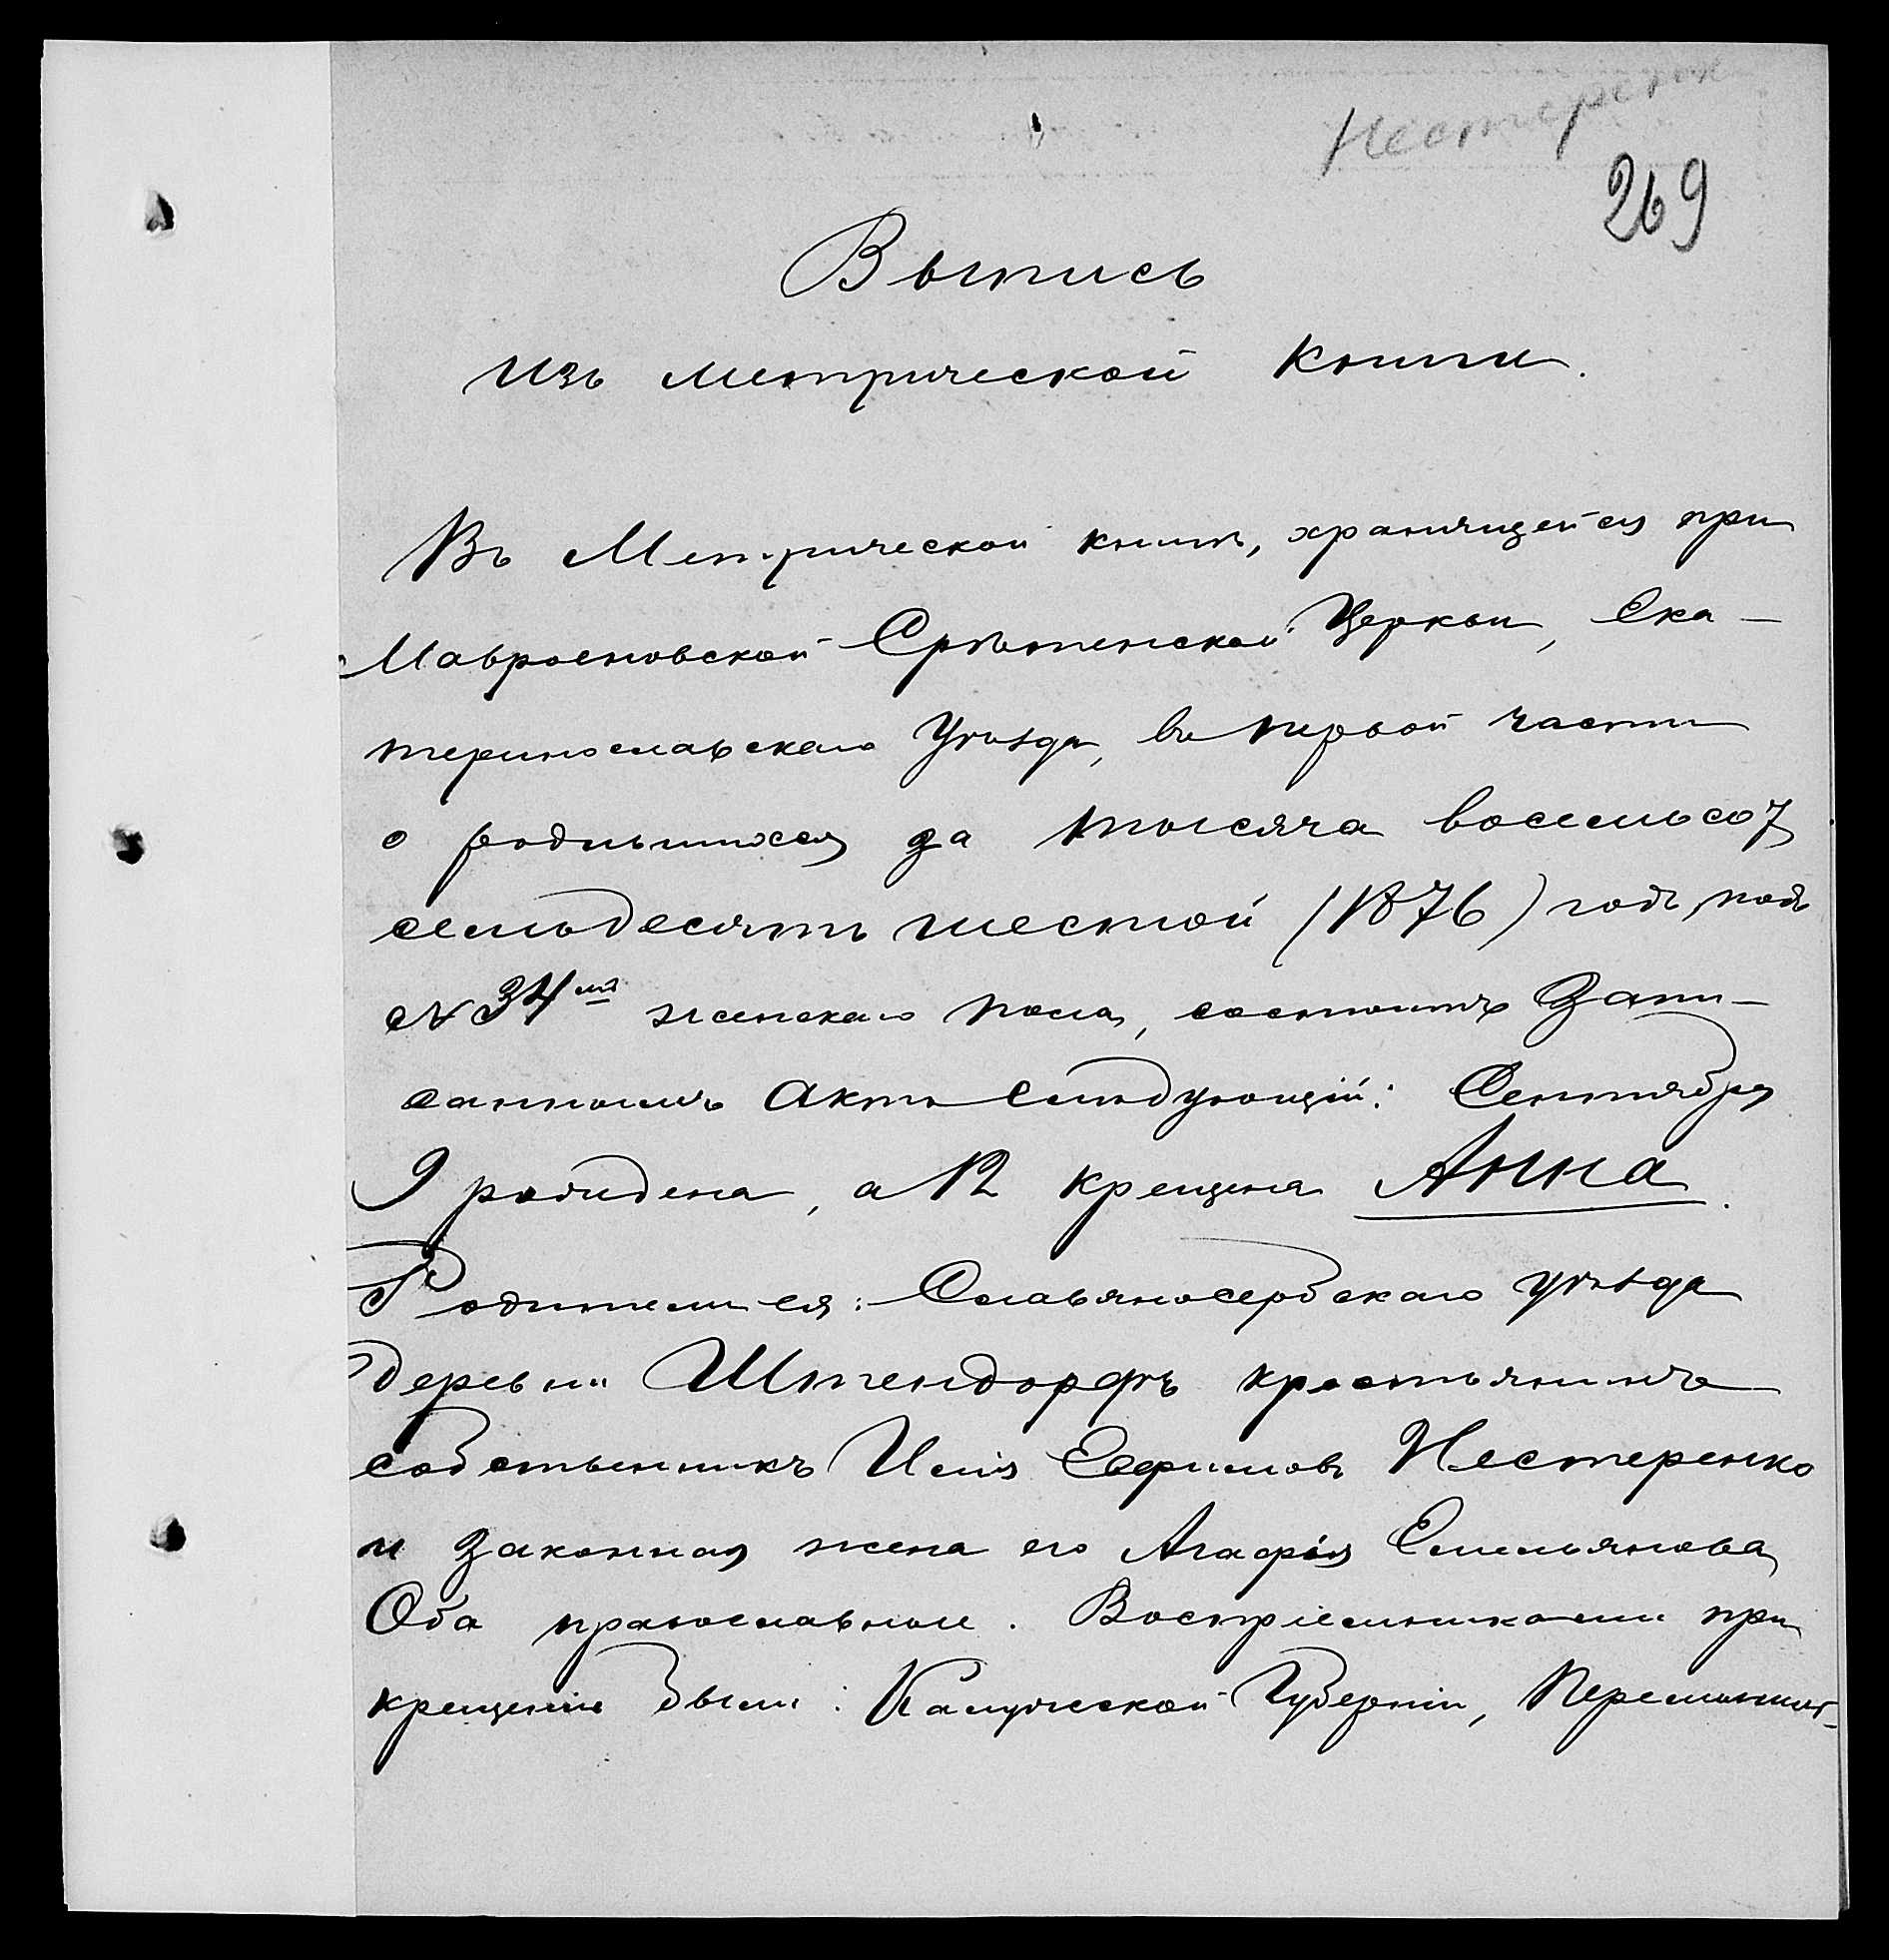 Нестеренк
269
Выпись
изъ метрической книги.
Въ Метрической книгѣ, хранящейся при
Мавроеновской Срѣтенской Церкви, Ека-
теринославскаго Уѣзда, въ первой части
о родившихся за тысяча восемьсот
семьдесятъ шестой (1876) годъ, подъ
№ 34мъ женскаго пола, состоитъ Запи-
саннымъ актъ слѣдующій: Сентября
9 рождена, а 12 крещена Анна.
Родители ея: Славяносербскаго уѣзда
деревни Штендорфъ крестьянинъ
собственникъ Илія Ефимовъ Нестеренко
и законная жена его Агафія Емельянова
Оба православные. Воспріемниками при
крещеніи были: Калужской Губерніи,